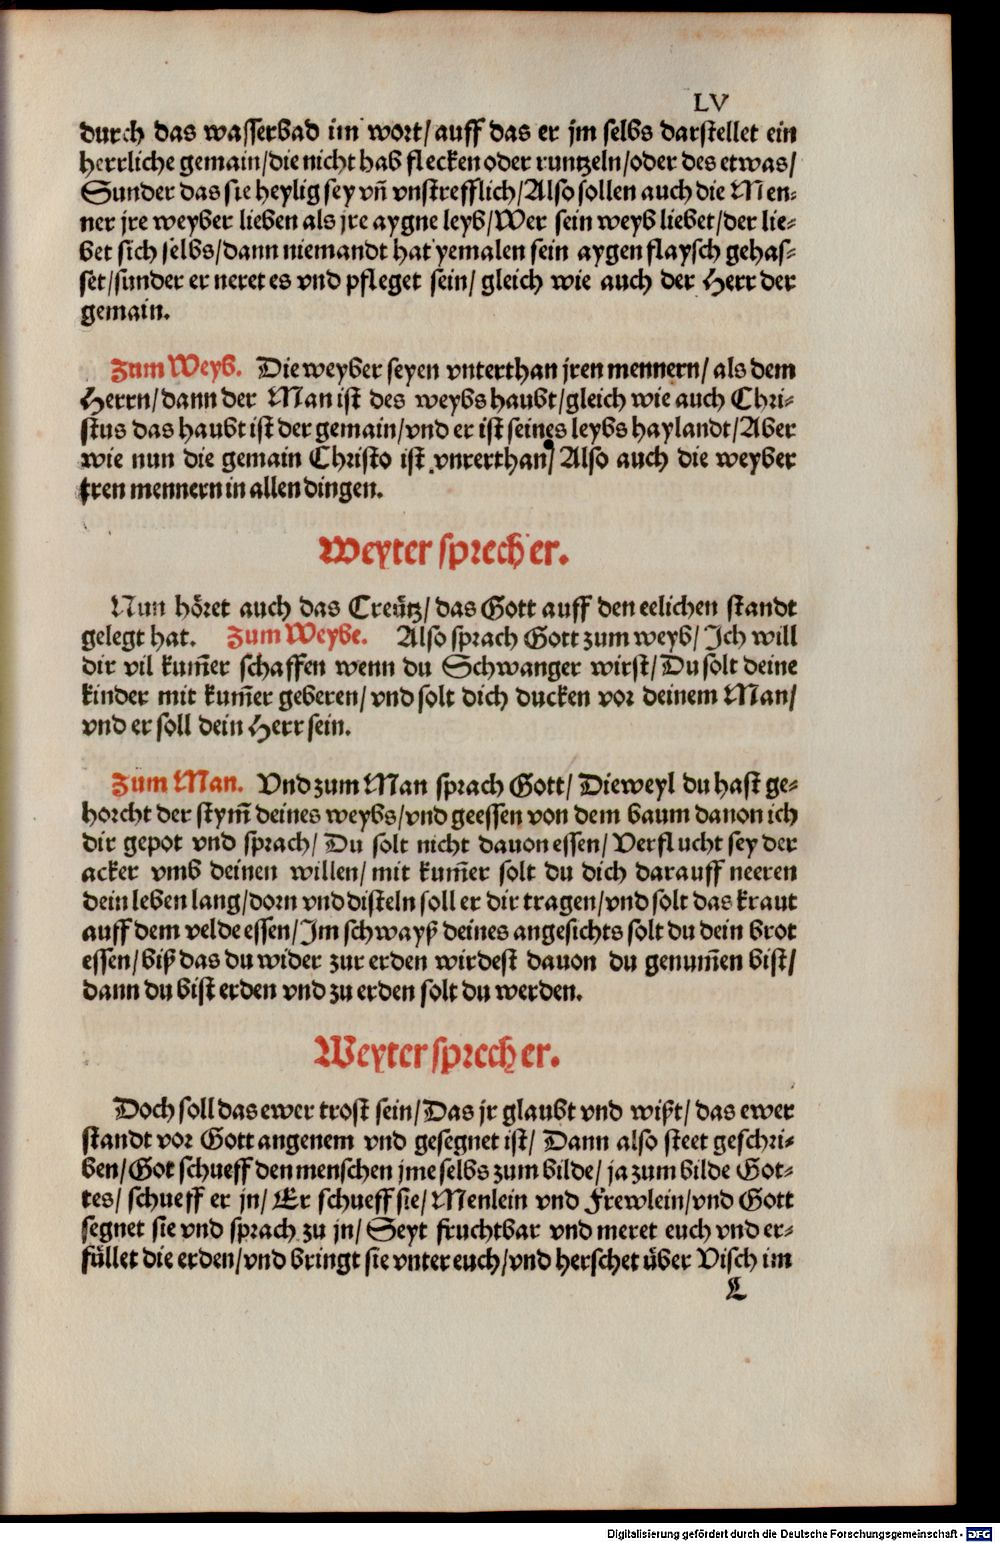 LV
durch das wasserbad im wort/ auff das er jm selbs darstellet ein
herrliche gemain/ die nicht hab flecken oder runtzeln/ oder des etwas/
Sunder das sie heylig sey vn̄ vnstrefflich/ Also sollen auch die Men-
ner jre weyber lieben als jre aygne leyb/ Wer sein weyb liebet/ der lie-
bet sich selbs/ dann niemandt hat yemalen sein aygen flaysch gehas-
set/ sunder er neret es vnd pfleget sein/ gleich wie auch der Herr der
gemain.
Zum Weyb. Die weyber seyen vnterthan jren mennern/ als dem
Herrn/ dann der Man ist des weybs haubt/ gleich wie auch Chri-
stus das haubt ist der gemain/ vnd er ist seines leybs haylandt/ Aber
wie nun die gemain Christo ist vnrerthan/ Also auch die weyber
jren mennern in allen dingen.
Weyter sprech er.
Nun höret auch das Creütz/ das Gott auff den eelichen standt
gelegt hat. Zum Weybe. Also sprach Gott zum weyb/ Ich will
dir vil kum̄er schaffen wenn du Schwanger wirst/ Du solt deine
kinder mit kum̄er geberen/ vnd solt dich ducken vor deinem Man/
vnd er soll dein Herr sein.
Zum Man. Vnd zum Man sprach Gott/ Dieweyl du hast ge-
horcht der stym̄ deines weybs/ vnd geessen von dem baum danon ich
dir gepot vnd sprach/ Du solt nicht dauon essen/ Verflucht sey der
acker vmb deinen willen/ mit kum̄er solt du dich darauff neeren
dein leben lang/ dorn vnd disteln soll er dir tragen/ vnd solt das kraut
auff dem velde essen/ Im schwayß deines angesichts solt du dein brot
essen/ biß das du wider zur erden wirdest dauon du genum̄en bist/
dann du bist erden vnd zu erden solt du werden.
Weyter sprech er.
Doch soll das ewer trost sein/ Das jr glaubt vnd wißt/ das ewer
standt vor Gott angenem vnd gesegnet ist/ Dann also steet geschri-
ben/ Got schueff den menschen jme selbs zum bilde/ ja zum bilde Got-
tes/ schueff er jn/ Er schueff sie/ Menlein vnd Frewlein/ vnd Gott
segnet sie vnd sprach zu jn/ Seyt fruchtbar vnd meret euch vnd er-
füllet die erden/ vnd bringt sie vnter euch/ vnd herschet über Visch im
L
Digitalisierung gefördert durch die Deutsche Forschungsgemeinschaft - DFG